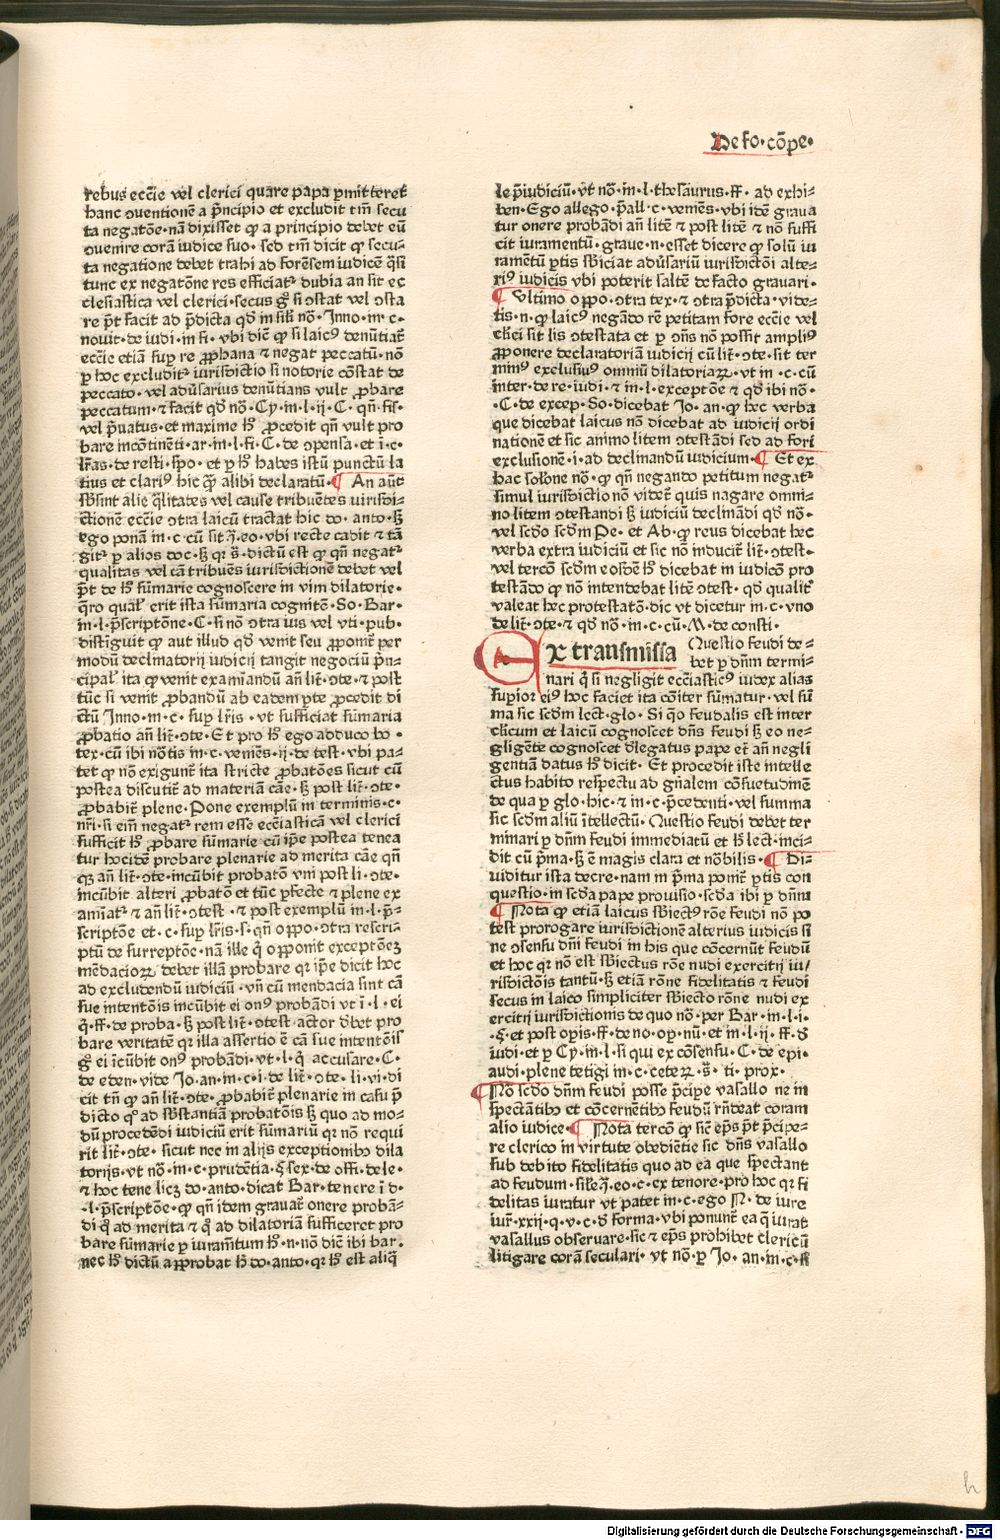 De fo·cōpe·
rebus ecc̄ie vel clerici quare papa ꝑmitteret
hanc ↄuentionē a p̄ncipio et excludit tm̄ secu
ta negatōe·nā dixisset ꝙ a principio debet eū
ↄuenire corā iudice suo·sed tm̄ dicit ꝙ secu⸗
ta negatione debet trahi ad forēsem iudicē q̄si
tunc ex negatōne res efficiatᷣ dubia an sit ec
clesiastica vel clerici·secus gͦ si ↄstat vel ↄsta
re p̄t facit ad p̄dicta qd̄ in sil̄i nō·Inno·in·c·
nouit·de iudi·in fi·vbi diē ꝙ si laicꝰ denūtiatᷣ
ecc̄ie etiā suꝑ re ꝓphana ⁊ negat peccatū·nō
ꝑ hoc excluditᷣ iurisdictio si notorie cōstat de
peccato·vel adūsarius denūtians vult ꝓbare
peccatum·⁊ facit qd̄ nō·Cy·in·l·ij·C·qn̄·fis·
vel p̄uatus·et maxime hͦ ꝓcedit qn̄ vult pro
bare incōtinēti·ar·in·l·fi·C·de ↄpensa·et·i·c·
lr̄as·de resti·spo·et ꝑ hͦ habes istū punctū la
tius et clariꝰ hic qᷓ alibi declaratū· ¶ An aūt
sb̄sint alie q̄litates vel cause tribuētes iurisdi⸗
ctionē ecc̄ie ↄtra laicū tractat hic do·anto·sꝫ
ego ponā in·c·cū sit ⁊̄·eo·vbi recte cadit ⁊ tā
gitᷣ ꝑ alios doc·sꝫ qr s̄·dictū est ꝙ qn̄ negatᷣ
qualitas vel cā tribuēs iurisdictionē debet vel
p̄t de hͦ sūmarie cognoscere in vim dilatorie·
q̄ro qual̓ erit ista sūmaria cognitē·So·Bar·
in·l·p̄scriptōne·C·si nō ↄtra ius vel vti·pub·
distiguit ꝙ aut illud qd̄ venit seu ꝓponit᷑ per
modū declinatorij iudicij tangit negociū p̄n⸗
cipal̓ ita ꝙ venit examinandū an̄ lit̄·ↄte·⁊ post
tūc si venit ꝓbandū ab eadem ꝑte ꝓcedit di
ctū Inno·in·c·suꝑ lr̄is·vt sufficiat sūmaria
ꝓbatio an̄ lit̄·ↄte·Et pro hͦ ego adduco bo·
tex·cū ibi nōtis in·c·veniēs·ij·de test·vbi pa⸗
tet ꝙ nō exigunt᷑ ita stricte ꝓbatōes sicut cū
postea discutit᷑ ad materiā cāe·sꝫ post lit̄·ↄte·
ꝓbabit᷑ plene·Pone exemplū in terminis·c·
nr̄i·si eīm negatᷣ rem esse ecc̄iasticā vel clerici
sufficit hͦ ꝓbare sūmarie cū ip̄e postea tenea
tur hocidē probare plenarie ad merita cāe qn̄
qꝫ an̄ lit̄·ↄte·incūbit probatō vni post li·ↄte·
incūbit alteri ꝓbatō et tūc ꝑfecte ⁊ plene ex
aminatᷣ ⁊ an̄ lit̄·ↄtest·⁊ post exemplū in·l·p̄⸗
scriptōe et·c·suꝑ lr̄is·s·qn̄ oppo·ↄtra rescri⸗
ptū de surreptōe·nā ille q̄ opponit exceptōeꝫ
mēdacioꝝ debet illā probare qr ip̄e dicit hoc
ad excludendū iudiciū·vn̄ cū mendacia sint cā
sue intentōis incūbit ei onꝰ probādi vt ī·l·ei
q̄·ff·de proba·sꝫ post lit̄·ↄtest·actor dꝫet pro
bare veritatē qr illa assertio ē cā sue intentōis
gͦ ei īcūbit onꝰ probādi·vt·l·q̄ accusare·C·
de eden·vide Jo·an·in·c·i·de lit̄·ↄte·li·vi·di
cit tn̄ ꝙ an̄ lit̄·ↄte·ꝓbabit᷑ plenarie in casu p̄
dicto qͦ ad sb̄stantiā probatōis sꝫ quo ad mo⸗
dū procedēdi iudiciū erit sūmariū qr nō requi
rit lit̄·ↄte·sicut nec in alijs exceptionibꝰ dila
torijs·vt nō·in·c·prudētia·§·sex·de offi·dele·
⁊ hoc tene licꝫ do·anto·dicat Bar·tenere ī d·
·l·p̄scriptōe·ꝙ qn̄ idem grauat᷑ onere probā⸗
di qͦ ad merita ⁊ qͦ ad dilatoriā sufficeret pro
bare sūmarie ꝑ iuram̄tum hͦ·n·nō diē ibi bar·
nec hͦ dictū approbat hͦ do·anto·qr hͦ est aliq̄
le p̄iudiciū·vt nō·in·l·thesaurus·ff·ad exhi⸗
ben·Ego allego·p̄all·c·veniēs·vbi idē graua
tur onere probādi an̄ litē ⁊ post litē ⁊ nō suffi
cit iuramentū·graue·n·esset dicere ꝙ solū iu
ramētū ꝑtis sb̄iciat adūsariū iurisdictōi alte⸗
riꝰ iudicis vbi poterit saltē de facto grauari·
¶ Vltimo oppo·ↄtra tex·⁊ ↄtra p̄dicta·vide⸗
tis·n·ꝙ laicꝰ negādo rē petitam fore ecc̄ie vel
cl̓ici sit lis ↄtestata et ꝑ ↄn̄s nō possit ampliꝰ
ꝓponere declaratoriā iudicij cū lit̄·ↄte·sit ter
minꝰ exclusiuꝰ omniū dilatoriaꝝ·vt in·c·cū
inter·de re·iudi·⁊ in·l·exceptōe ⁊ qd̄ ibi nō·
·C·de excep·So·dicebat Jo·an·ꝙ hec verba
que dicebat laicus nō dicebat ad iudicij ordi
nationē et sic animo litem ↄtestādi sed ad fori
exclusionē·i·ad declinandū iudicium· ¶ Et ex
hac solōne nō·ꝙ qn̄ negando petitum negatᷣ
simul iurisdictio nō videt᷑ quis nagare omni⸗
no litem ↄtestandi sꝫ iudiciū declinādi qd̄ nō·
vel scd̄o scd̄m Pe·et Ab·ꝙ reus dicebat hec
verba extra iudiciū et sic nō inducit᷑ lit̄·ↄtest·
vel tercō scd̄m eosdē hͦ dicebat in iudicō pro
testādo ꝙ nō intendebat litē ↄtest·qd̄ qualit᷑
valeat hec protestatō·dic vt dicetur in·c·vno
de lit̄·ↄte·⁊ qd̄ nō·in·c·cū·M·de consti·
Ex transmissa Questio feudi de⸗
bet ꝑ dn̄m termi⸗
nari q̄ si negligit ecc̄iasticꝰ iudex alias
suꝑior eiꝰ hoc faciet ita cōiter sūmatur·vel sū
ma sic scd̄m lect·glo·Si qͦo feudalis est inter
cl̓icum et laicū cognoscet dn̄s feudi sꝫ eo ne⸗
gligēte cognoscet dl̓egatus pape et᷑ an̄ negli
gentiā datus hͦ dicit·Et procedit iste intelle
ctus habito respectu ad gn̄alem cōsuetudinē
de qua ꝑ glo·hic·⁊ in·c·p̄cedenti·vel summa
sic scd̄m aliū ītellectū·Questio feudi debet ter
minari ꝑ dn̄m feudi immediatū et hͦ lect·inci⸗
dit cū p̄ma·sꝫ ē magis clara et nōbilis· ¶ Di⸗
uiditur ista decre·nam in p̄ma ponit᷑ ꝑtis con
questio·in scd̄a pape prouisio·scd̄a ibi ꝑ dn̄m
¶ Nota ꝙ etiā laicus sb̄iectꝰ rōe feudi nō po
test prorogare iurisdictionē alterius iudicis si
ne ↄsensu dn̄i feudi in his que cōcernūt feudū
et hoc qr nō est sb̄iectus rōe nudi exercitij iu/
risdictōis tantū·sꝫ etiā rōne fidelitatis ⁊ feudi
secus in laico simpliciter sb̄iecto rōne nudi ex
ercitij iurisdictionis de quo nō·per Bar·in·l·i·
·§·et post opis·ff·de no·op·nū·et in·l·ij·ff·d̓
iudi·et ꝑ Cy·in·l·si qui ex cōsensu·C·de epi·
audi·plene tetigi in·c·ceteꝝ·s̄·ti·prox·
¶ Nō scd̄o dn̄m feudi posse p̄cipe vasallo ne in
spectātibꝰ et cōcernētibꝰ feudū rn̄deat coram
alio iudice· ¶ Nota tercō ꝙ sic̄ ep̄s p̄t p̄cipe⸗
re clerico in virtute obediētie sic dn̄s vasallo
sub debito fidelitatis quo ad ea que spectant
ad feudum·sil̄e ⁊̄·eo·c·ex tenore·pro hoc qr fi
delitas iuratur vt patet in·c·ego N·de iure
iur̄·xxij·q·v·c·d̓ forma·vbi ponunt᷑ ea q̄ iurat
vasallus obseruare·sic ⁊ ep̄s prohibet clericū
litigare corā seculari·vt nō·ꝑ Jo·an·in·c·si
h
Digitalisierung gefördert durch die Deutsche Forschungsgemeinschaft - DFG